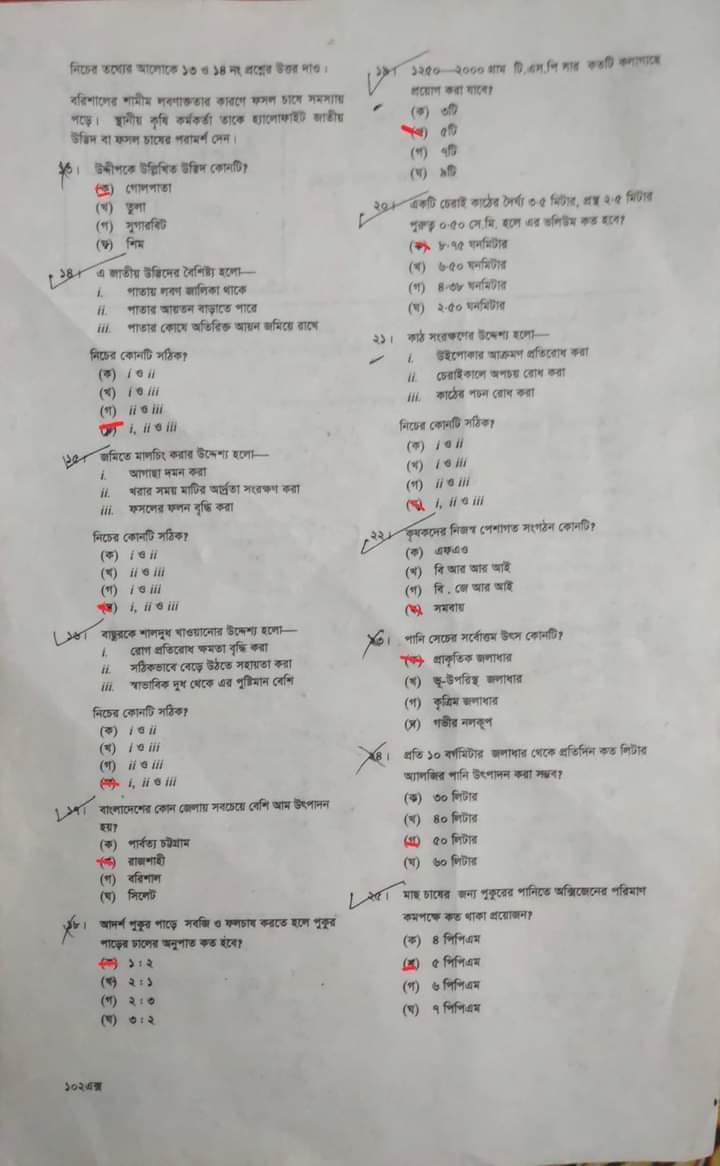 নিচের তথ্যের আলোকে ১৩ ও ১৪ নং প্রশ্নের উত্তর দাও।
বরিশালের শামীম লবণাক্ততার কারণে ফসল চাষে সমস্যায়
পড়ে। স্থানীয় কৃষি কর্মকর্তা তাকে হ্যালোফাইট জাতীয়
উদ্ভিদ বা ফসল চাষের পরামর্শ দেন।
১৩। উদ্দীপকে উল্লিখিত উদ্ভিদ কোনটি?
(ক) গোলপাতা
(খ) তুলা
(গ) সুগারবিট
(ঘ) শিম
১৪। এ জাতীয় উদ্ভিদের বৈশিষ্ট্য হলো—
i. পাতায় লবণ জালিকা থাকে
ii. পাতার আয়তন বাড়াতে পারে
iii. পাতার কোষে অতিরিক্ত আয়ন জমিয়ে রাখে
নিচের কোনটি সঠিক?
(ক) i ও ii
(খ) i ও iii
(গ) ii ও iii
(ঘ) i, ii ও iii
১৫। জমিতে মালচিং করার উদ্দেশ্য হলো—
i. আগাছা দমন করা
ii. খরার সময় মাটির আর্দ্রতা সংরক্ষণ করা
iii. ফসলের ফলন বৃদ্ধি করা
নিচের কোনটি সঠিক?
(ক) i ও ii
(খ) ii ও iii
(গ) i ও iii
(ঘ) i, ii ও iii
১৬। বাছুরকে শালদুধ খাওয়ানোর উদ্দেশ্য হলো—
i. রোগ প্রতিরোধ ক্ষমতা বৃদ্ধি করা
ii. সঠিকভাবে বেড়ে উঠতে সহায়তা করা
iii. স্বাভাবিক দুধ থেকে এর পুষ্টিমান বেশি
নিচের কোনটি সঠিক?
(ক) i ও ii
(খ) i ও iii
(গ) ii ও iii
(ঘ) i, ii ও iii
১৭। বাংলাদেশের কোন জেলায় সবচেয়ে বেশি আম উৎপাদন
হয়?
(ক) পার্বত্য চট্টগ্রাম
(খ) রাজশাহী
(গ) বরিশাল
(ঘ) সিলেট
১৮। আদর্শ পুকুর পাড়ে সবজি ও ফলচাষ করতে হলে পুকুর
পাড়ের ঢালের অনুপাত কত হবে?
(ক) ১ : ২
(খ) ২ : ১
(গ) ২ : ৩
(ঘ) ৩ : ২
১০২এক্স
১৯। ১২৫০—২০০০ গ্রাম টি.এস.পি সার কতটি কলাগাছে
প্রয়োগ করা যাবে?
(ক) ৩টি
(খ) ৫টি
(গ) ৭টি
(ঘ) ৯টি
২০। একটি চেরাই কাঠের দৈর্ঘ্য ৩.৫ মিটার, প্রস্থ ২.৫ মিটার
পুরুত্ব ০.৫০ সে.মি. হলে এর ভলিউম কত হবে?
(ক) ৮.৭৫ ঘনমিটার
(খ) ৬.৫০ ঘনমিটার
(গ) ৪.৩৮ ঘনমিটার
(ঘ) ২.৫০ ঘনমিটার
২১। কাঠ সংরক্ষণের উদ্দেশ্য হলো—
i. উইপোকার আক্রমণ প্রতিরোধ করা
ii. চেরাইকালে অপচয় রোধ করা
iii. কাঠের পচন রোধ করা
নিচের কোনটি সঠিক?
(ক) i ও ii
(খ) i ও iii
(গ) ii ও iii
(ঘ) i, ii ও iii
২২। কৃষকদের নিজস্ব পেশাগত সংগঠন কোনটি?
(ক) এফএও
(খ) বি আর আর আই
(গ) বি . জে আর আই
(ঘ) সমবায়
২৩। পানি সেচের সর্বোত্তম উৎস কোনটি?
(ক) প্রাকৃতিক জলাধার
(খ) ভূ-উপরিস্থ জলাধার
(গ) কৃত্রিম জলাধার
(ঘ) গভীর নলকূপ
২৪। প্রতি ১০ বর্গমিটার জলাধার থেকে প্রতিদিন কত লিটার
অ্যালজির পানি উৎপাদন করা সম্ভব?
(ক) ৩০ লিটার
(খ) ৪০ লিটার
(গ) ৫০ লিটার
(ঘ) ৬০ লিটার
২৫। মাছ চাষের জন্য পুকুরের পানিতে অক্সিজেনের পরিমাণ
কমপক্ষে কত থাকা প্রয়োজন?
(ক) ৪ পিপিএম
(খ) ৫ পিপিএম
(গ) ৬ পিপিএম
(ঘ) ৭ পিপিএম